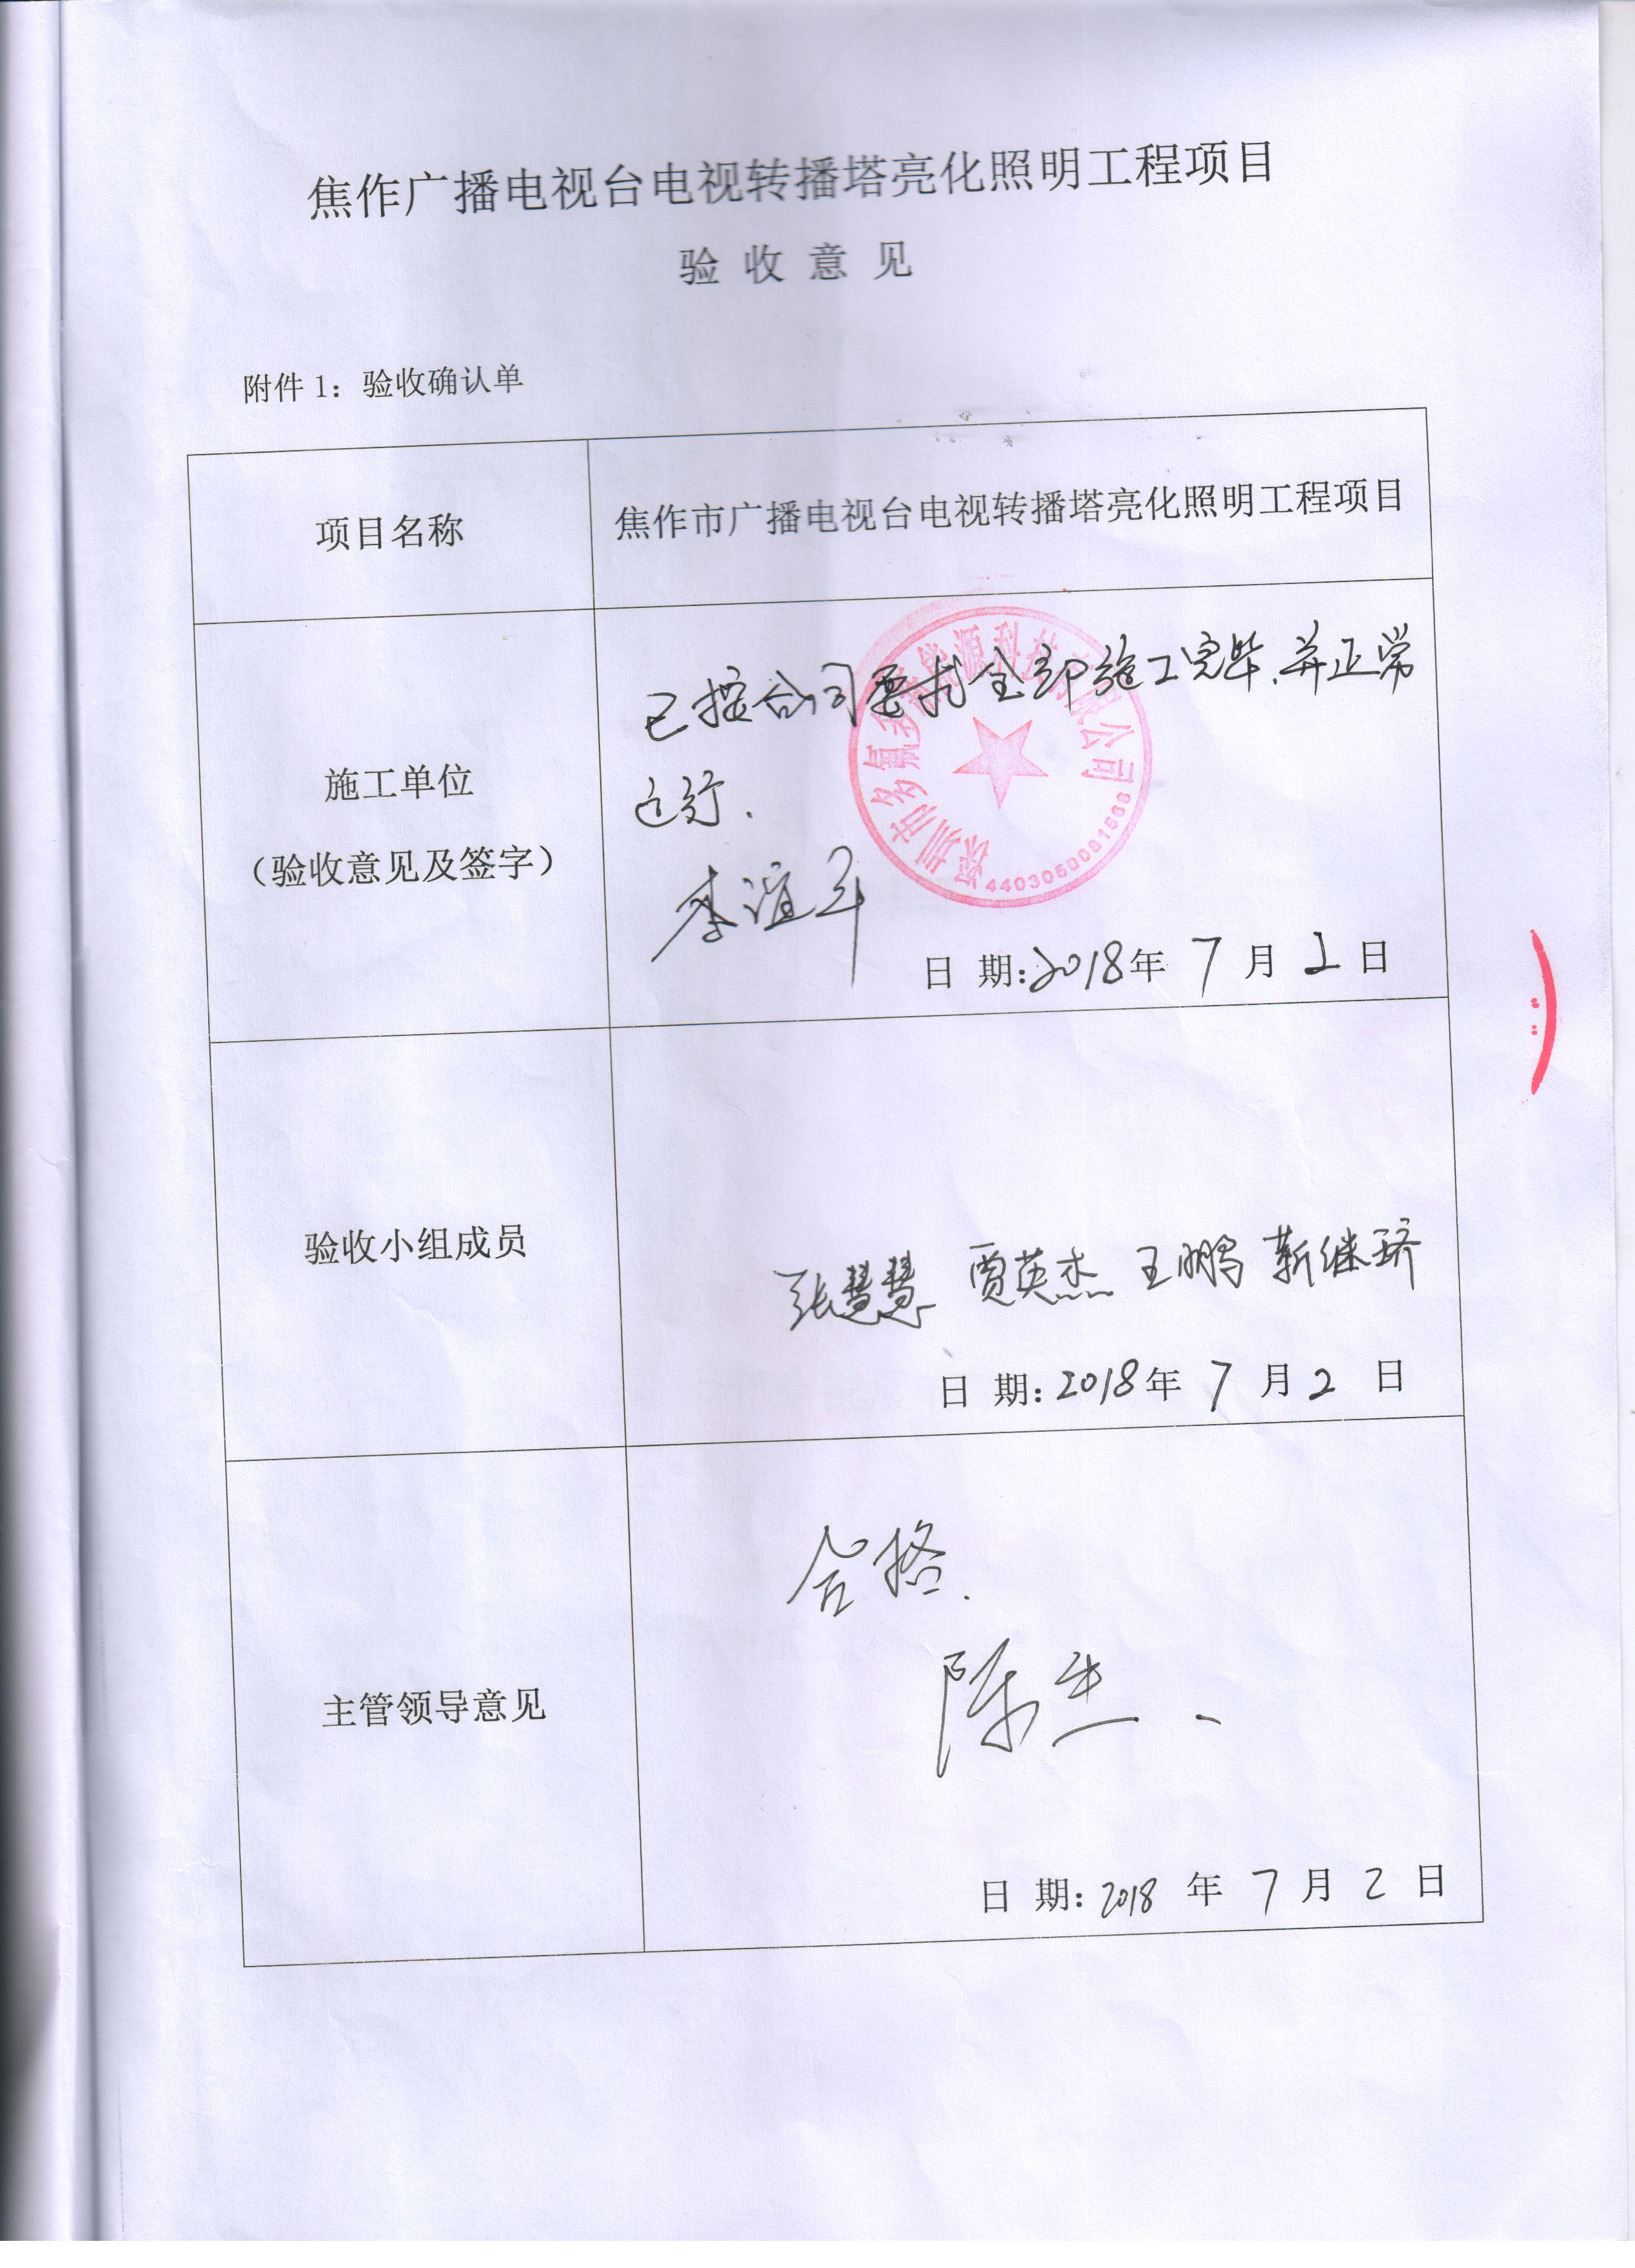 焦作广播电视台电视转播塔亮化照明工程项目
验收意见
附件1：验收确认单
项目名称
焦作市广播电视台电视转播塔亮化照明工程项目
施工单位
（验收意见及签字）
已按合同要求全部施工完毕,并正常
运行.
深圳市多氟多新能源科技有限公司
4403050081566
日 期:2018年 7 月 2 日
验收小组成员
张慧慧 贾英杰 王鹏 靳继
日 期:2018年 7 月 2 日
主管领导意见
合格.
陈杰
日 期:2018 年 7 月 2 日